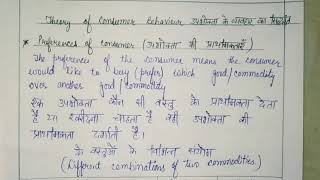 Theory of Consumer Behaviour उपभोक्ता के व्यवहार का सिद्धांत
* Preferences of consumer (उपभोक्ता की प्राथमिकताएँ)
The preferences of the consumer means the consumer
would like to buy (prefer) which good/commodity
over another good/commodity
एक उपभोक्ता कौन सी वस्तु को प्राथमिकता देता
है या खरीदना चाहता है वही उपभोक्ता की
प्राथमिकता दर्शाती है।
के वस्तुओं के विभिन्न संयोग
(Different combinations of two commodities)